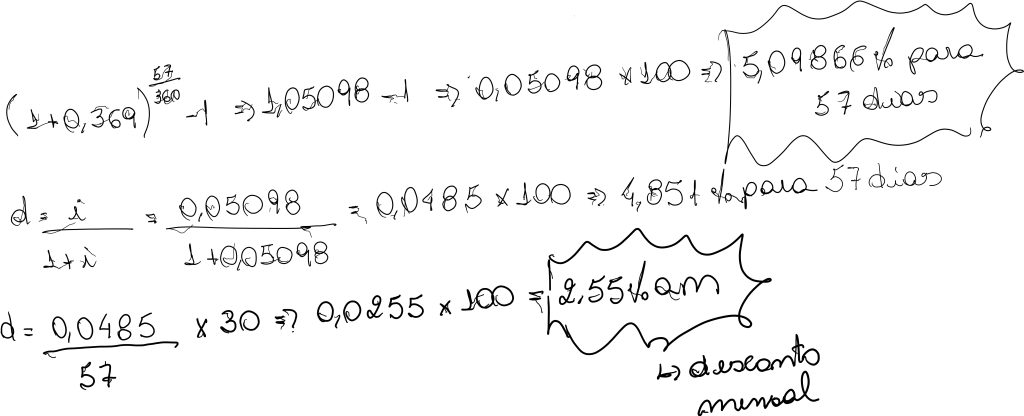 (1+0,369)^(57/360) -1 ⇒ 1,05098 -1 ⇒ 0,05098 × 100 ⇒ 5,09866% para
57 dias
d = i/(1+i) = 0,05098/(1+0,05098) = 0,0485 × 100 ⇒ 4,851% para 57 dias
d = 0,0485/57 × 30 ⇒ 0,0255 × 100 = 2,55% am
↳ desconto
mensal